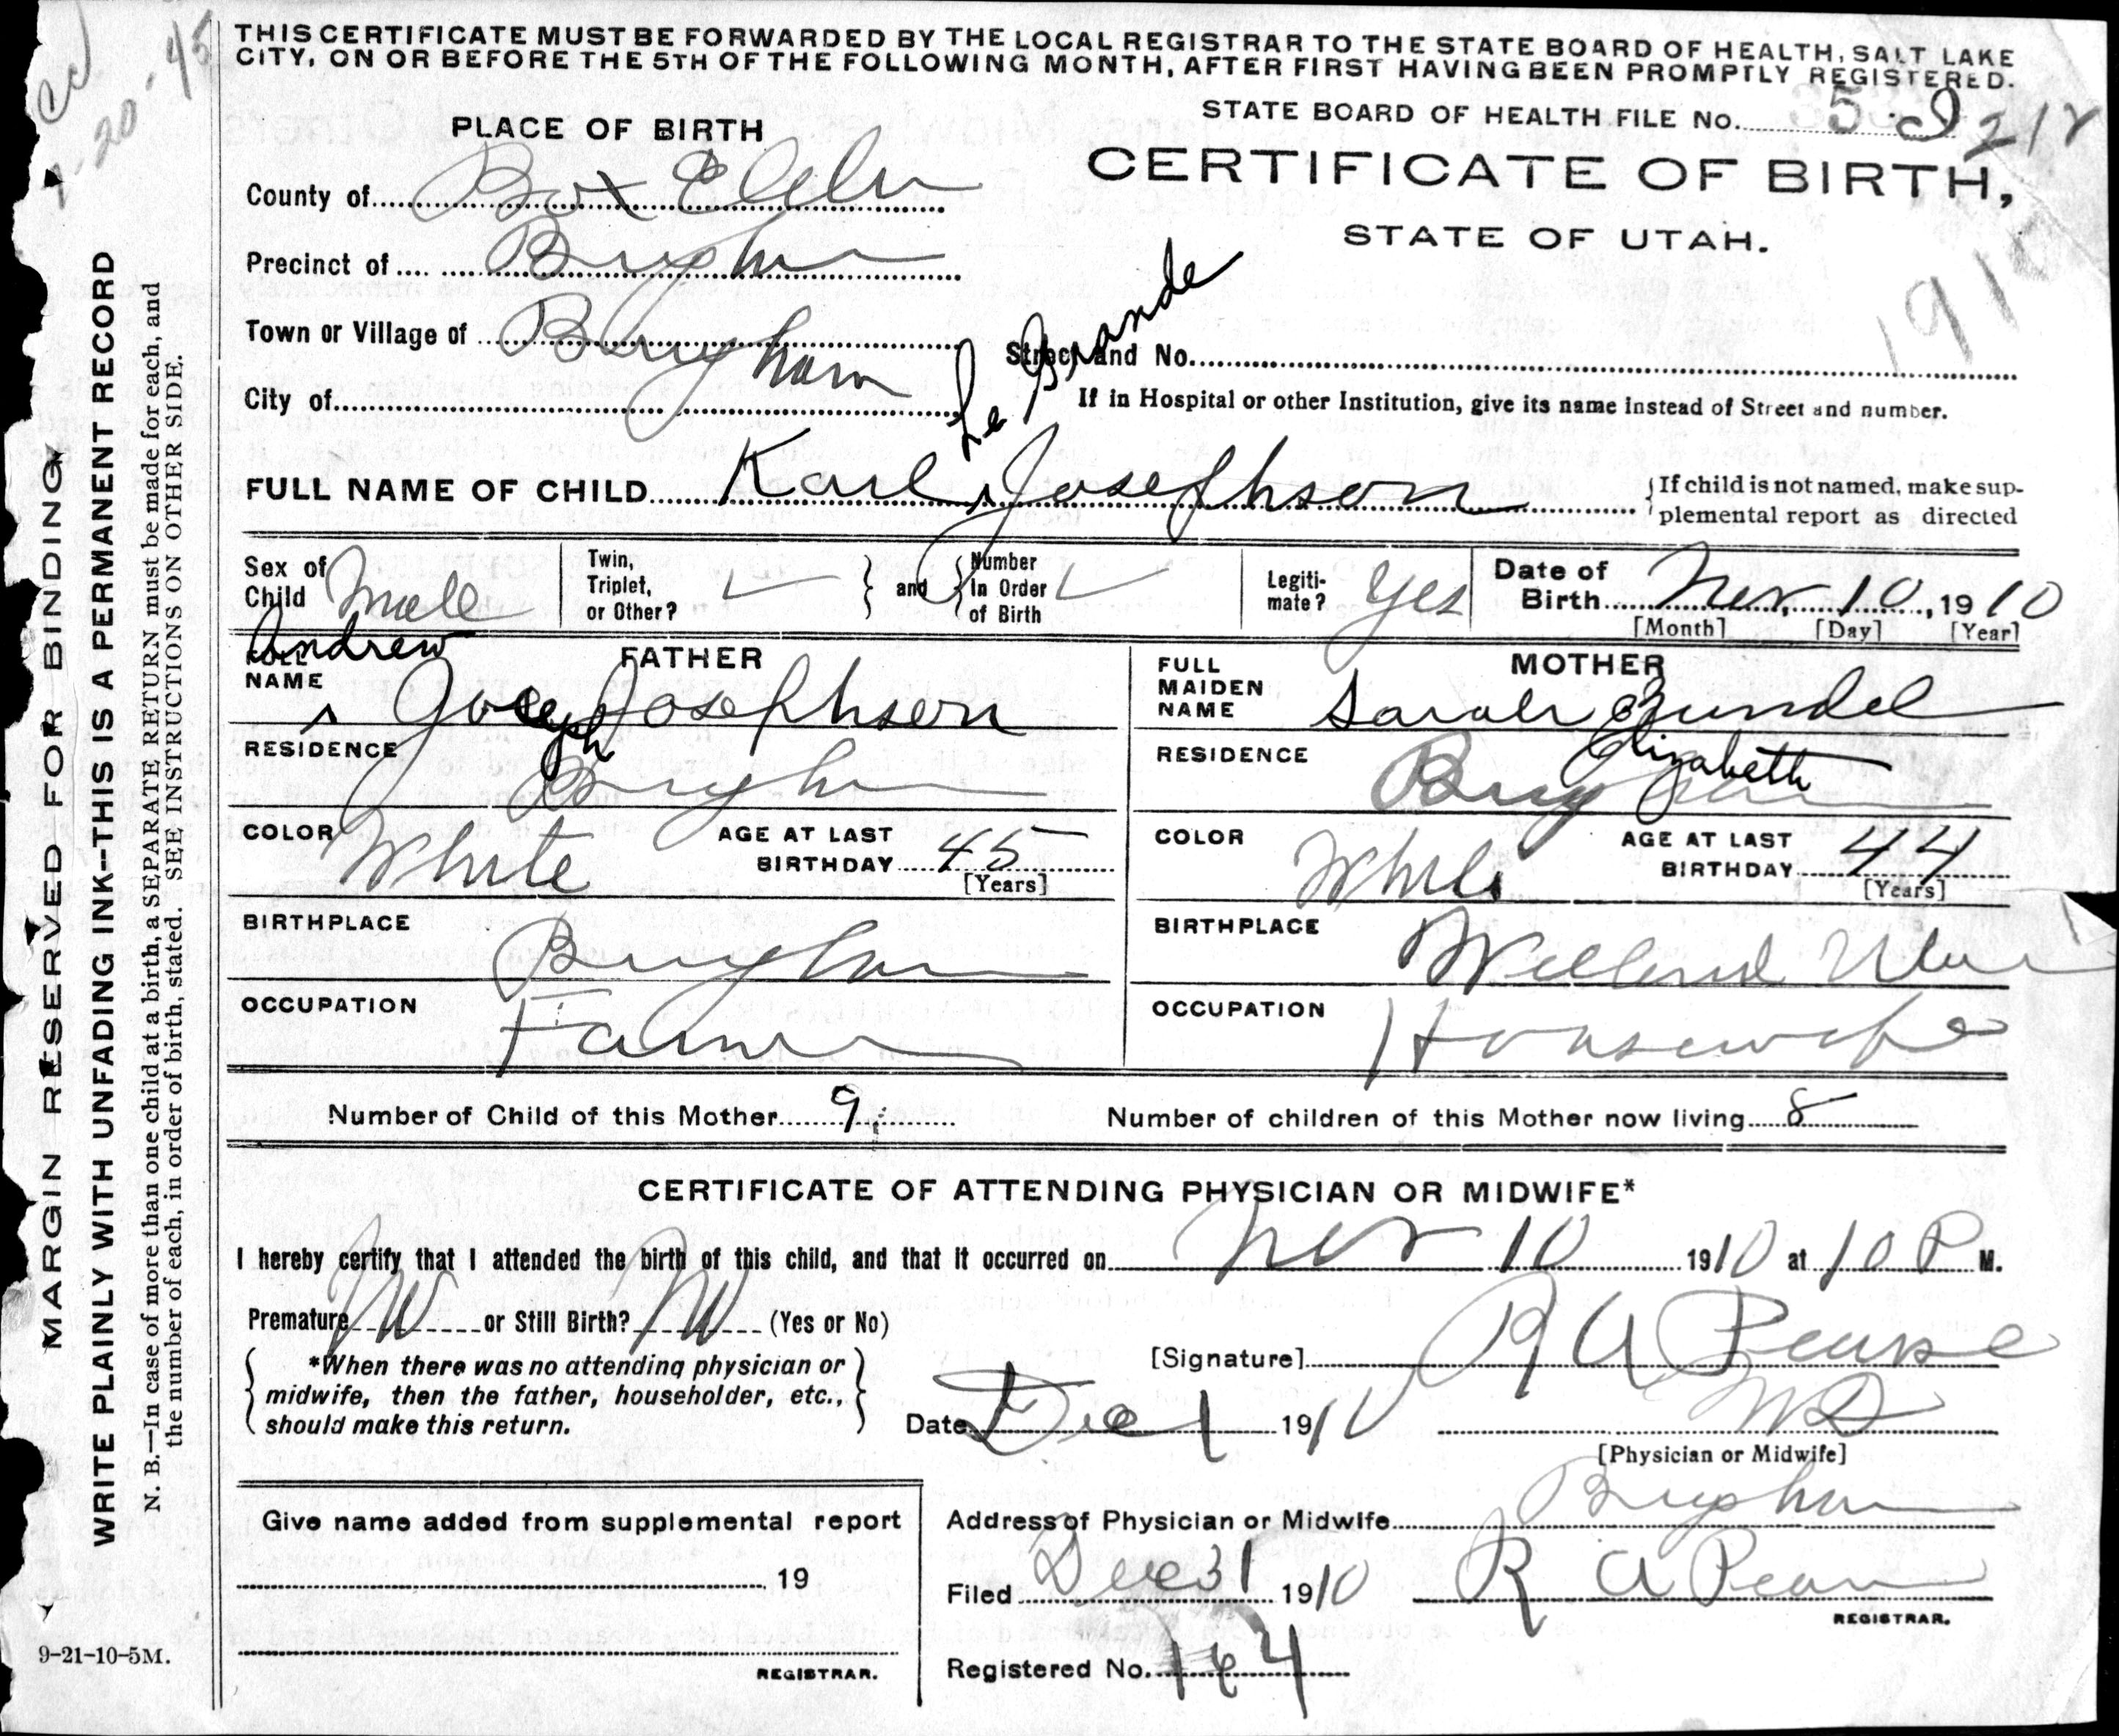 THIS CERTIFICATE MUST BE FORWARDED BY THE LOCAL REGISTRAR TO THE STATE BOARD OF HEALTH, SALT LAKE
CITY, ON OR BEFORE THE 5TH OF THE FOLLOWING MONTH, AFTER FIRST HAVING BEEN PROMPTLY REGISTERED.
STATE BOARD OF HEALTH FILE NO.
PLACE OF BIRTH
CERTIFICATE OF BIRTH,
STATE OF UTAH.
1910
County of Box Elder
Precinct of Brigham
Town or Village of Brigham
Street and No.
City of
If in Hospital or other Institution, give its name instead of Street and number.
Le Grande
FULL NAME OF CHILD Karl ^ Josephson
If child is not named, make sup-
plemental report as directed
Sex of Child Male
Twin, Triplet, or Other? ✓ and Number In Order of Birth ✓
Legiti-mate? Yes
Date of Birth Nov. 10, 1910
[Month] [Day] [Year]
FATHER
FULL NAME Andrew ^ Joseph Josephson
RESIDENCE Brigham
COLOR White AGE AT LAST BIRTHDAY 45
[Years]
BIRTHPLACE Brigham
OCCUPATION Farmer
MOTHER
FULL MAIDEN NAME Sarah Elizabeth Zundel
RESIDENCE Brigham
COLOR White AGE AT LAST BIRTHDAY 44
[Years]
BIRTHPLACE Willard Utah
OCCUPATION Housewife
Number of Child of this Mother 9 Number of children of this Mother now living 8
CERTIFICATE OF ATTENDING PHYSICIAN OR MIDWIFE*
I hereby certify that I attended the birth of this child, and that it occurred on Nov 10 1910 at 10 P M.
Premature No or Still Birth? No (Yes or No)
*When there was no attending physician or
midwife, then the father, householder, etc.,
should make this return.
[Signature] R A Pearse
Date Dec 1 1910 MD
[Physician or Midwife]
Give name added from supplemental report
19
REGISTRAR.
Address of Physician or Midwife Brigham
Filed Dec 31 1910 R A Pearse
REGISTRAR.
Registered No. 164
MARGIN RESERVED FOR BINDING
WRITE PLAINLY WITH UNFADING INK--THIS IS A PERMANENT RECORD
N. B.—In case of more than one child at a birth, a SEPARATE RETURN must be made for each, and
the number of each, in order of birth, stated. SEE INSTRUCTIONS ON OTHER SIDE.
9-21-10-5M.